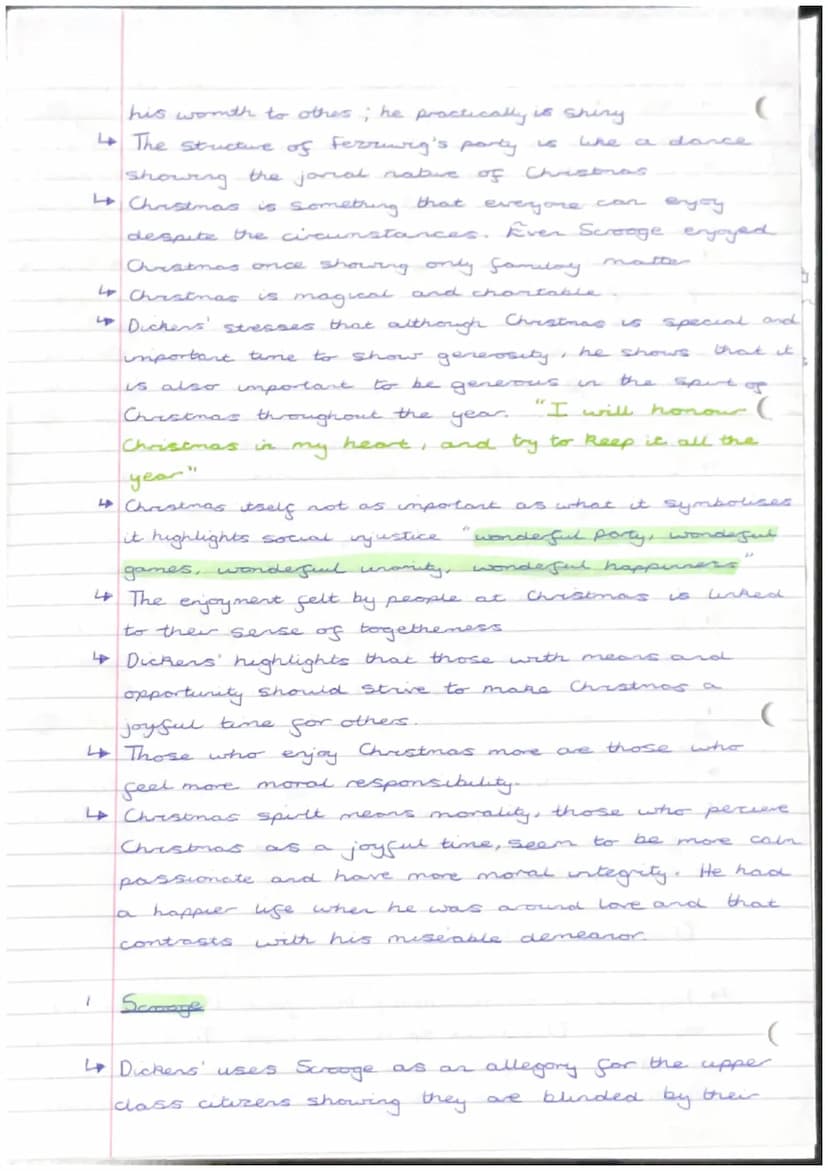 his womth to othes ; he practically is shiny
↳ The structure of Fezziwig's party is like a dance
showing the jovial nature of Christmas
↳ Christmas is something that everyone can enjoy
despite the circumstances. Even Scrooge enjoyed
Christmas once showing only family matter
↳ Christmas is magical and charitable.
↳ Dickens' stresses that although Christmas is special and
important time to show generosity, he shows that it
is also important to be generous in the spirit of
Christmas throughout the year. "I will honour
Christmas in my heart, and try to keep it all the
year"
↳ Christmas itself not as important as what it symbolises
it highlights social injustice "wonderful party, wonderful
games, wonderful unanity, wonderful happinness"
↳ The enjoyment felt by people at Christmas is linked
to their sense of togetheness
↳ Dickens' highlights that those with means and
opportunity should strive to make Christmas a
joyful time for others.
↳ Those who enjoy Christmas more are those who
feel more moral responsibility.
↳ Christmas spirit means morality, those who percieve
Christmas as a joyful time, seem to be more com
passionate and have more moral integrity. He had
a happier life when he was around love and that
contrasts with his miserable demeanor.
Scrooge
↳ Dickens' uses Scrooge as an allegory for the upper
class citizens showing they are blinded by their